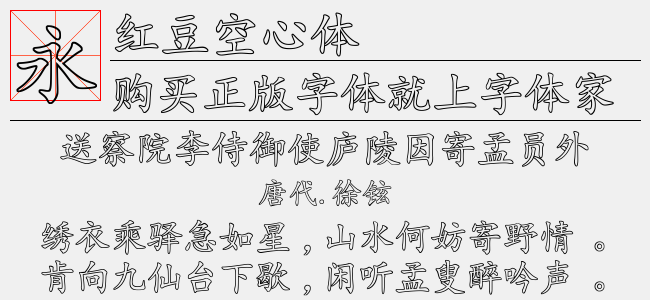 永
红豆空心体
购买正版字体就上字体家
送察院李侍御使庐陵因寄孟员外
唐代.徐铉
绣衣乘驿急如星，山水何妨寄野情。
肯向九仙台下歇，闲听孟叟醉吟声。